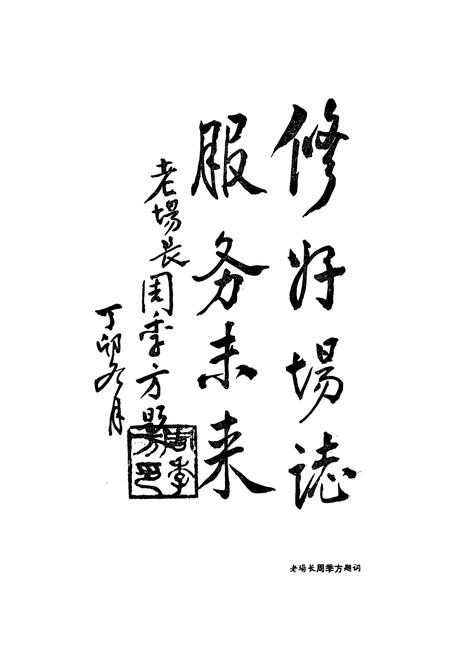 修好場誌
服务未来
老場長周季方題
丁卯冬月
周季
老場长周季方题词